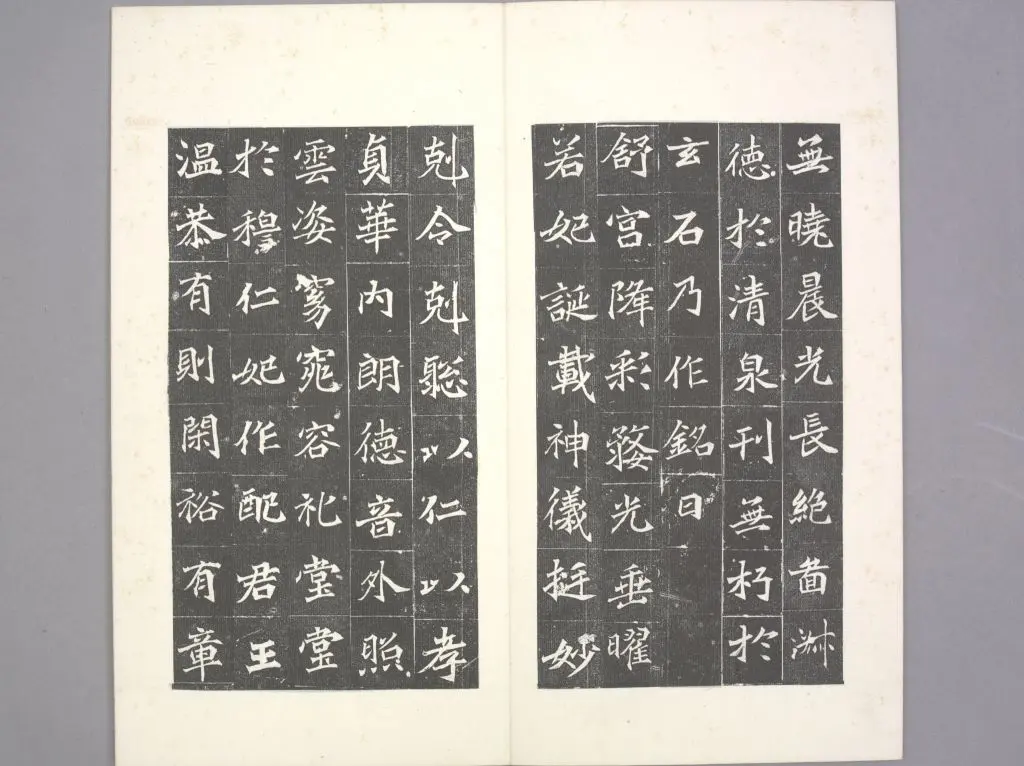 無曉晨光長絶啚淑
德於清泉刊無朽於
玄石乃作銘曰
舒宫降彩婺光垂曜
若妃誕載神儀挺妙
剋令剋聦以仁以孝
貞華内朗德音外照
雲姿窈窕容礼堂堂
於穆仁妃作配君王
温恭有則閑裕有章